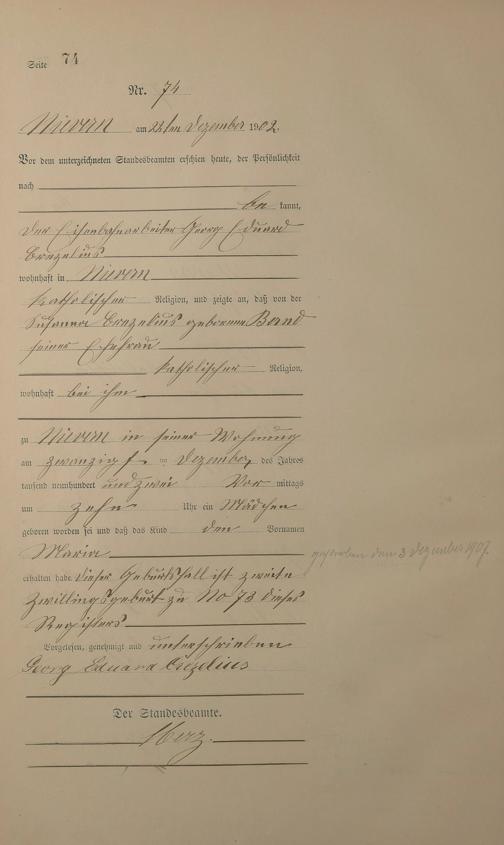 Seite 74
Nr. 74
Nievern am 22ten Dezember 1902.
Vor dem unterzeichneten Standesbeamten erschien heute, der Persönlichkeit
nach
be kannt,
der Eisenbahnarbeiter Georg Eduard
Crezelius
wohnhaft in Nievern
katholischer Religion, und zeigte an, daß von der
Susanna Crezelius geborenen Band
seiner Ehefrau
katholischer Religion,
wohnhaft bei ihm
zu Nievern in seiner Wohnung
am zwanzigst en Dezember des Jahres
tausend neunhundert und zwei Vor mittags
um zehn Uhr ein Mädchen
geboren worden sei und daß das Kind den Vornamen
Maria
gestorben den 3 Dezember 1907.
erhalten habe dieser Geburtsfall ist zweite
Zwillingsgeburt zu No 73 dieses
Registers
Vorgelesen, genehmigt und unterschrieben
Georg Eduard Crezelius
Der Standesbeamte.
Herz.